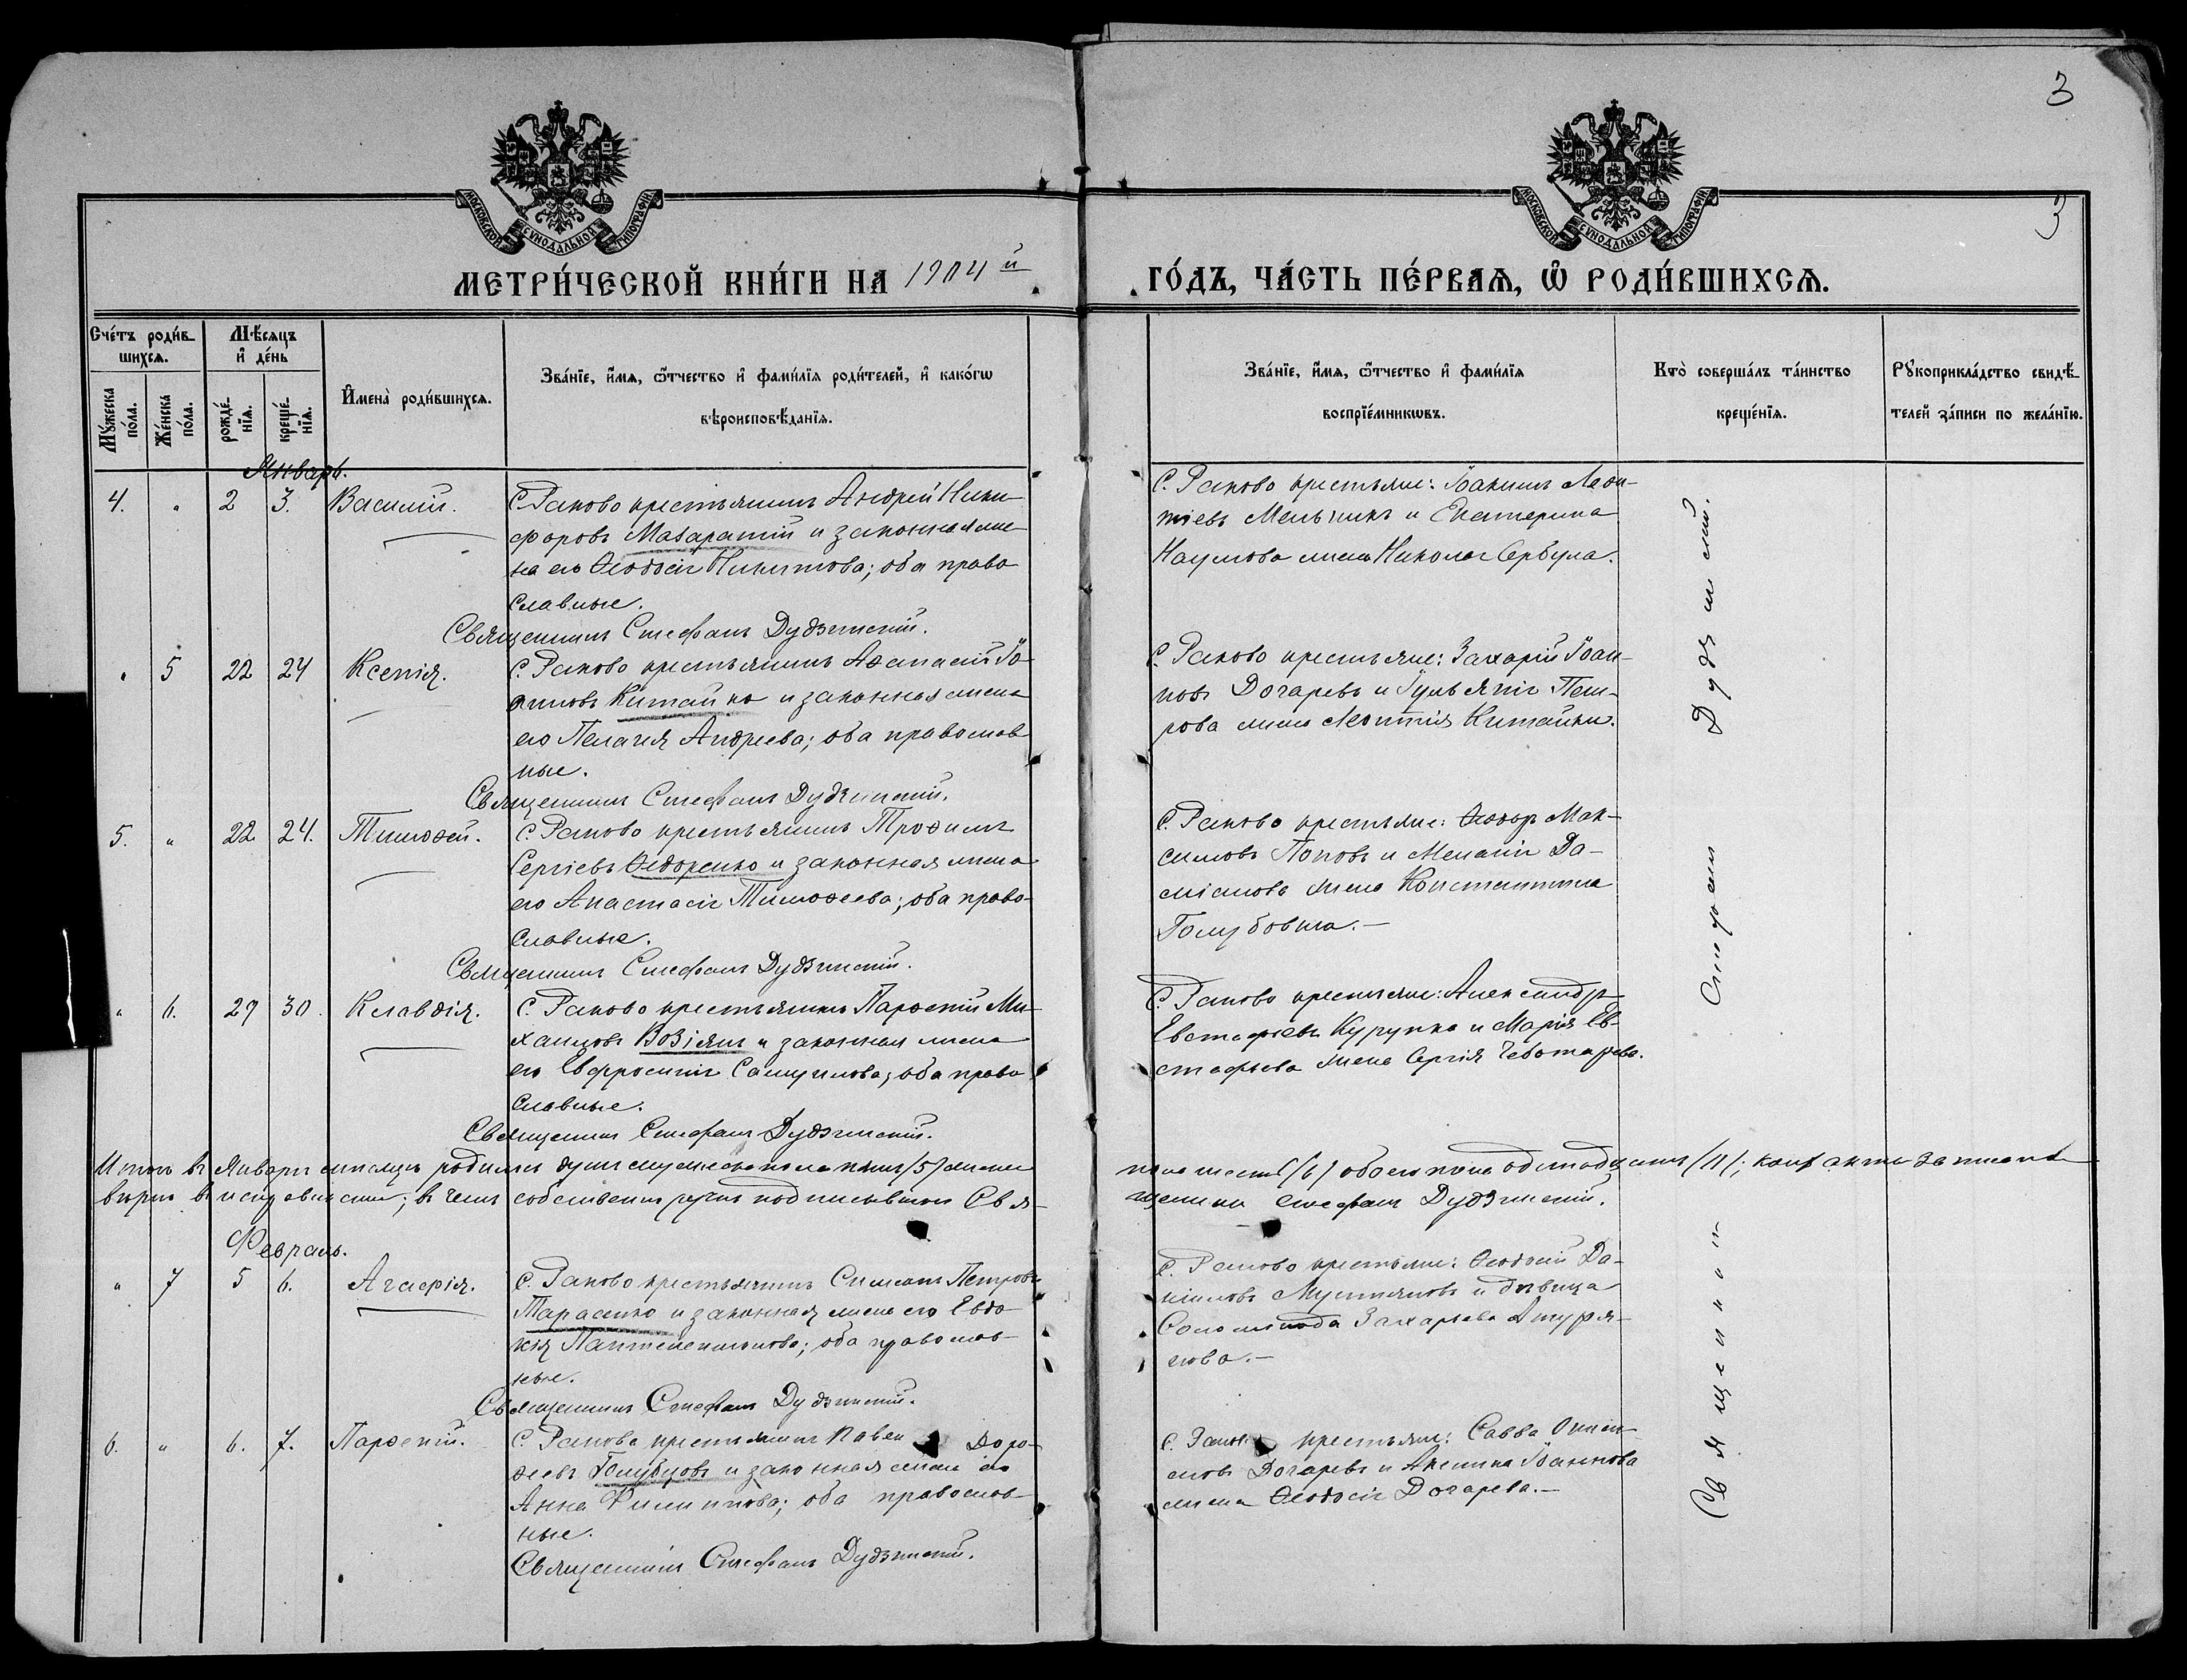 3
МОСКОВСКОЙ СУНОДАЛЬНОЙ ТИПОГРАФІИ
МОСКОВСКОЙ СУНОДАЛЬНОЙ ТИПОГРАФІИ
3
МЕТРИ́ЧЕСКОЙ КНИ́ГИ НА 1904 й
ГО́ДЪ, ЧА́СТЬ ПЕ́РВАѦ, Ѡ҆ РОДИ́ВШИХСѦ.
Сче́тъ роди́в-
шихсѧ.
Мѣ́сѧцъ
и҆ де́нь
Мꙋ́жеска
по́ла.
Же́нска
по́ла.
рожде́-
нїѧ.
креще́-
нїѧ.
И҆мена̀ роди́вшихсѧ.
Зва́нїе, и҆́мѧ, ѻ҆́тчество и҆ фами́лїѧ роди́телей, и҆ како́гѡ
вѣроисповѣ́данїѧ.
Зва́нїе, и҆́мѧ, ѻ҆́тчество и҆ фами́лїѧ
воспрїе́мникѡвъ.
Кто̀ соверша́лъ та́инство
креще́нїѧ.
Рꙋкоприкла́дство свидѣ́-
телей за́писи по жела́нїю.
Январь.
4. " 2 3. Василій.
С. Раково крестьянинъ Андрей Ники-
форовъ Мазаратій и законная же-
на его Ѳеодосія Никитова; оба право
славные.
Священникъ Стефанъ Дудзинскій.
С. Раково крестьяне: Іоакимъ Леон-
тіевъ Мельникъ и Екатерина
Наумова жена Николая Сербула.
" 5 22 24 Ксенія.
С. Раково крестьянинъ Аѳанасій Іо-
анновъ Китайко и законная жена
его Пелагія Андреева; оба православ
ные.
Священникъ Стефанъ Дудзинскій.
С. Раково крестьяне: Захарій Іоан-
новъ Догаревъ и Іульянія Пет-
рова жена Леонтія Китайки.
5. " 22 24. Тимоѳей.
С. Раково крестьянинъ Троѳимъ
Сергіевъ Ѳедоренко и законная жена
его Анастасія Тимоѳеева; оба право-
славные.
Священникъ Стефанъ Дудзинскій.
С. Раково крестьяне: Ѳеодоръ Мак-
симовъ Поповъ и Меланія Да-
міанова жена Константина
Голубовича.-
" 6. 29 30. Клавдія.
С. Раково крестьянинъ Парѳеній Ми-
хаиловъ Возіянъ и законная жена
его Евфросинія Самуилова; оба право
славные.
Священникъ Стефанъ Дудзинскій.
С. Раково крестьяне: Александръ
Евстафіевъ Курупка и Марія Ев-
стафьева жена Сергія Чеботарева.
Итого въ Январѣ мѣсяцѣ родилось душъ мужеска пола пять /5/ женска
пола шесть /6/ обоего пола одинадцать /11/; коихъ акты записаны
вѣрно въ исправности; въ чемъ собственноручно подписываюсь Свя-
щенникъ Стефанъ Дудзинскій.
Февраль.
" 7 5 6. Агафія.
С. Раково крестьянинъ Симеонъ Петровъ
Тарасенко и законная жена его Евдо
кія Пантелеимонова; оба православ-
ные.
Священникъ Стефанъ Дудзинскій.
С. Раково крестьяне: Ѳеодосій Да-
ніиловъ Мустяновъ и дѣвица
Соломонида Захарьева
6. " 6. 7. Парѳеній.
С. Раково крестьянинъ Павелъ Доро-
ѳеевъ Голубцовъ и законная жена его
Анна Филиппова; оба православ-
ные.
Священникъ Стефанъ Дудзинскій.
С. Раково крестьяне: Савва
Догаревъ и Акилина Іоаннова
жена Ѳеодосія Догарева.-
Священникъ Стефанъ Дудзинскій.